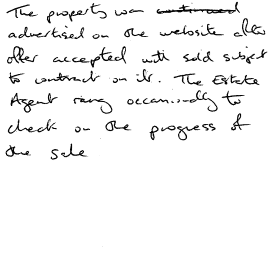 The property was continued
advertised on the website after
offer accepted with sold subject
to contract on it. The Estate
Agent rang occasionally to
check on the progress of
the sale